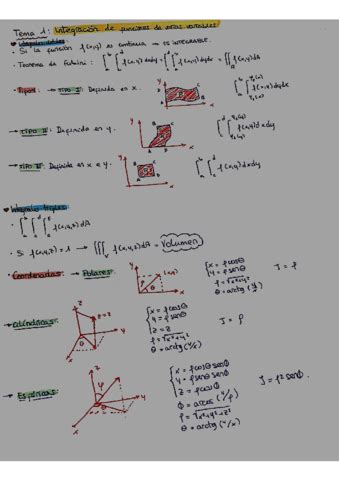 Tema 1: Integración de funciones de varias variables
• Integrales dobles
• Si la función f(x,y) es continua → es INTEGRABLE.
• Teorema de Fubini: ∫_a^b ∫_c^d f(x,y) dxdy = ∫_c^d ∫_a^b f(x,y) dydx = ∬_R f(x,y) dA
• Tipos: → TIPO I: Definida en x. ∫_a^b ∫ f(x,y) dydx
→ TIPO II: Definida en y. ∫_c^d ∫ f(x,y) dxdy
→ TIPO III: Definida en x e y. ∫_a^b ∫_c^d f(x,y) dxdy
• Integrales triples:
• ∫_a^b ∫_c^d ∫_e^f f(x,y,z) dA
• Si f(x,y,z) = 1 → ∭_V f(x,y,z) dA = Volumen
• Coordenadas: → Polares: x = ρcosθ
y = ρsenθ
ρ = √x²+y²
θ = arctg (y/x)
J = ρ
→ Cilíndricas: x = ρcosθ
y = ρsenθ
z = z
ρ = √x²+y²
θ = arctg (y/x)
J = ρ
→ Esféricas: x = ρcosθ senφ
y = ρsenθ senφ
z = ρcosφ
φ = arcos (z/ρ)
ρ = √x²+y²+z²
θ = arctg (y/x)
J = ρ² senφ.